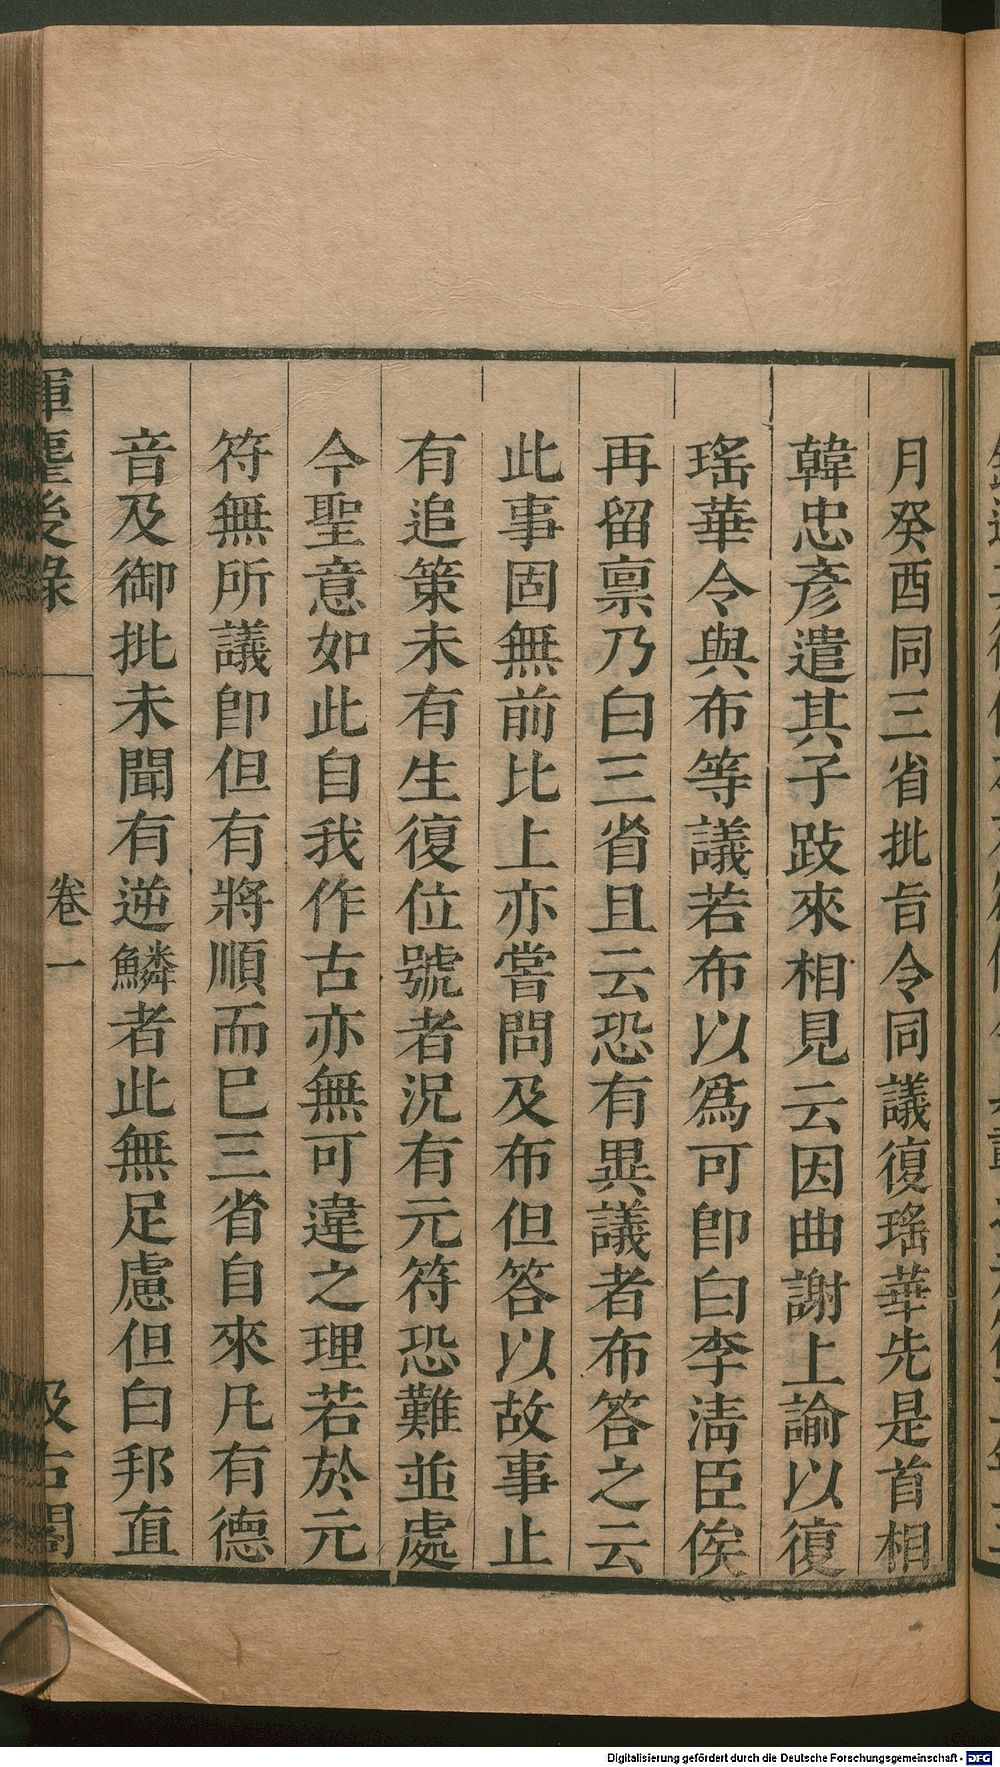 月癸酉同三省批旨令同議復瑤華先是首相
韓忠彥遣其子跂來相見云因曲謝上諭以復
瑤華令與布等議若布以爲可卽白李淸臣俟
再留禀乃白三省且云恐有異議者布答之云
此事固無前比上亦嘗問及布但答以故事止
有追策未有生復位號者况有元符恐難並處
今聖意如此自我作古亦無可違之理若於元
符無所議卽但有將順而巳三省自來凡有德
音及御批未聞有逆鱗者此無足慮但白邦直
揮麈後錄
卷一
汲古閣
Digitalisierung gefördert durch die Deutsche Forschungsgemeinschaft - DFG